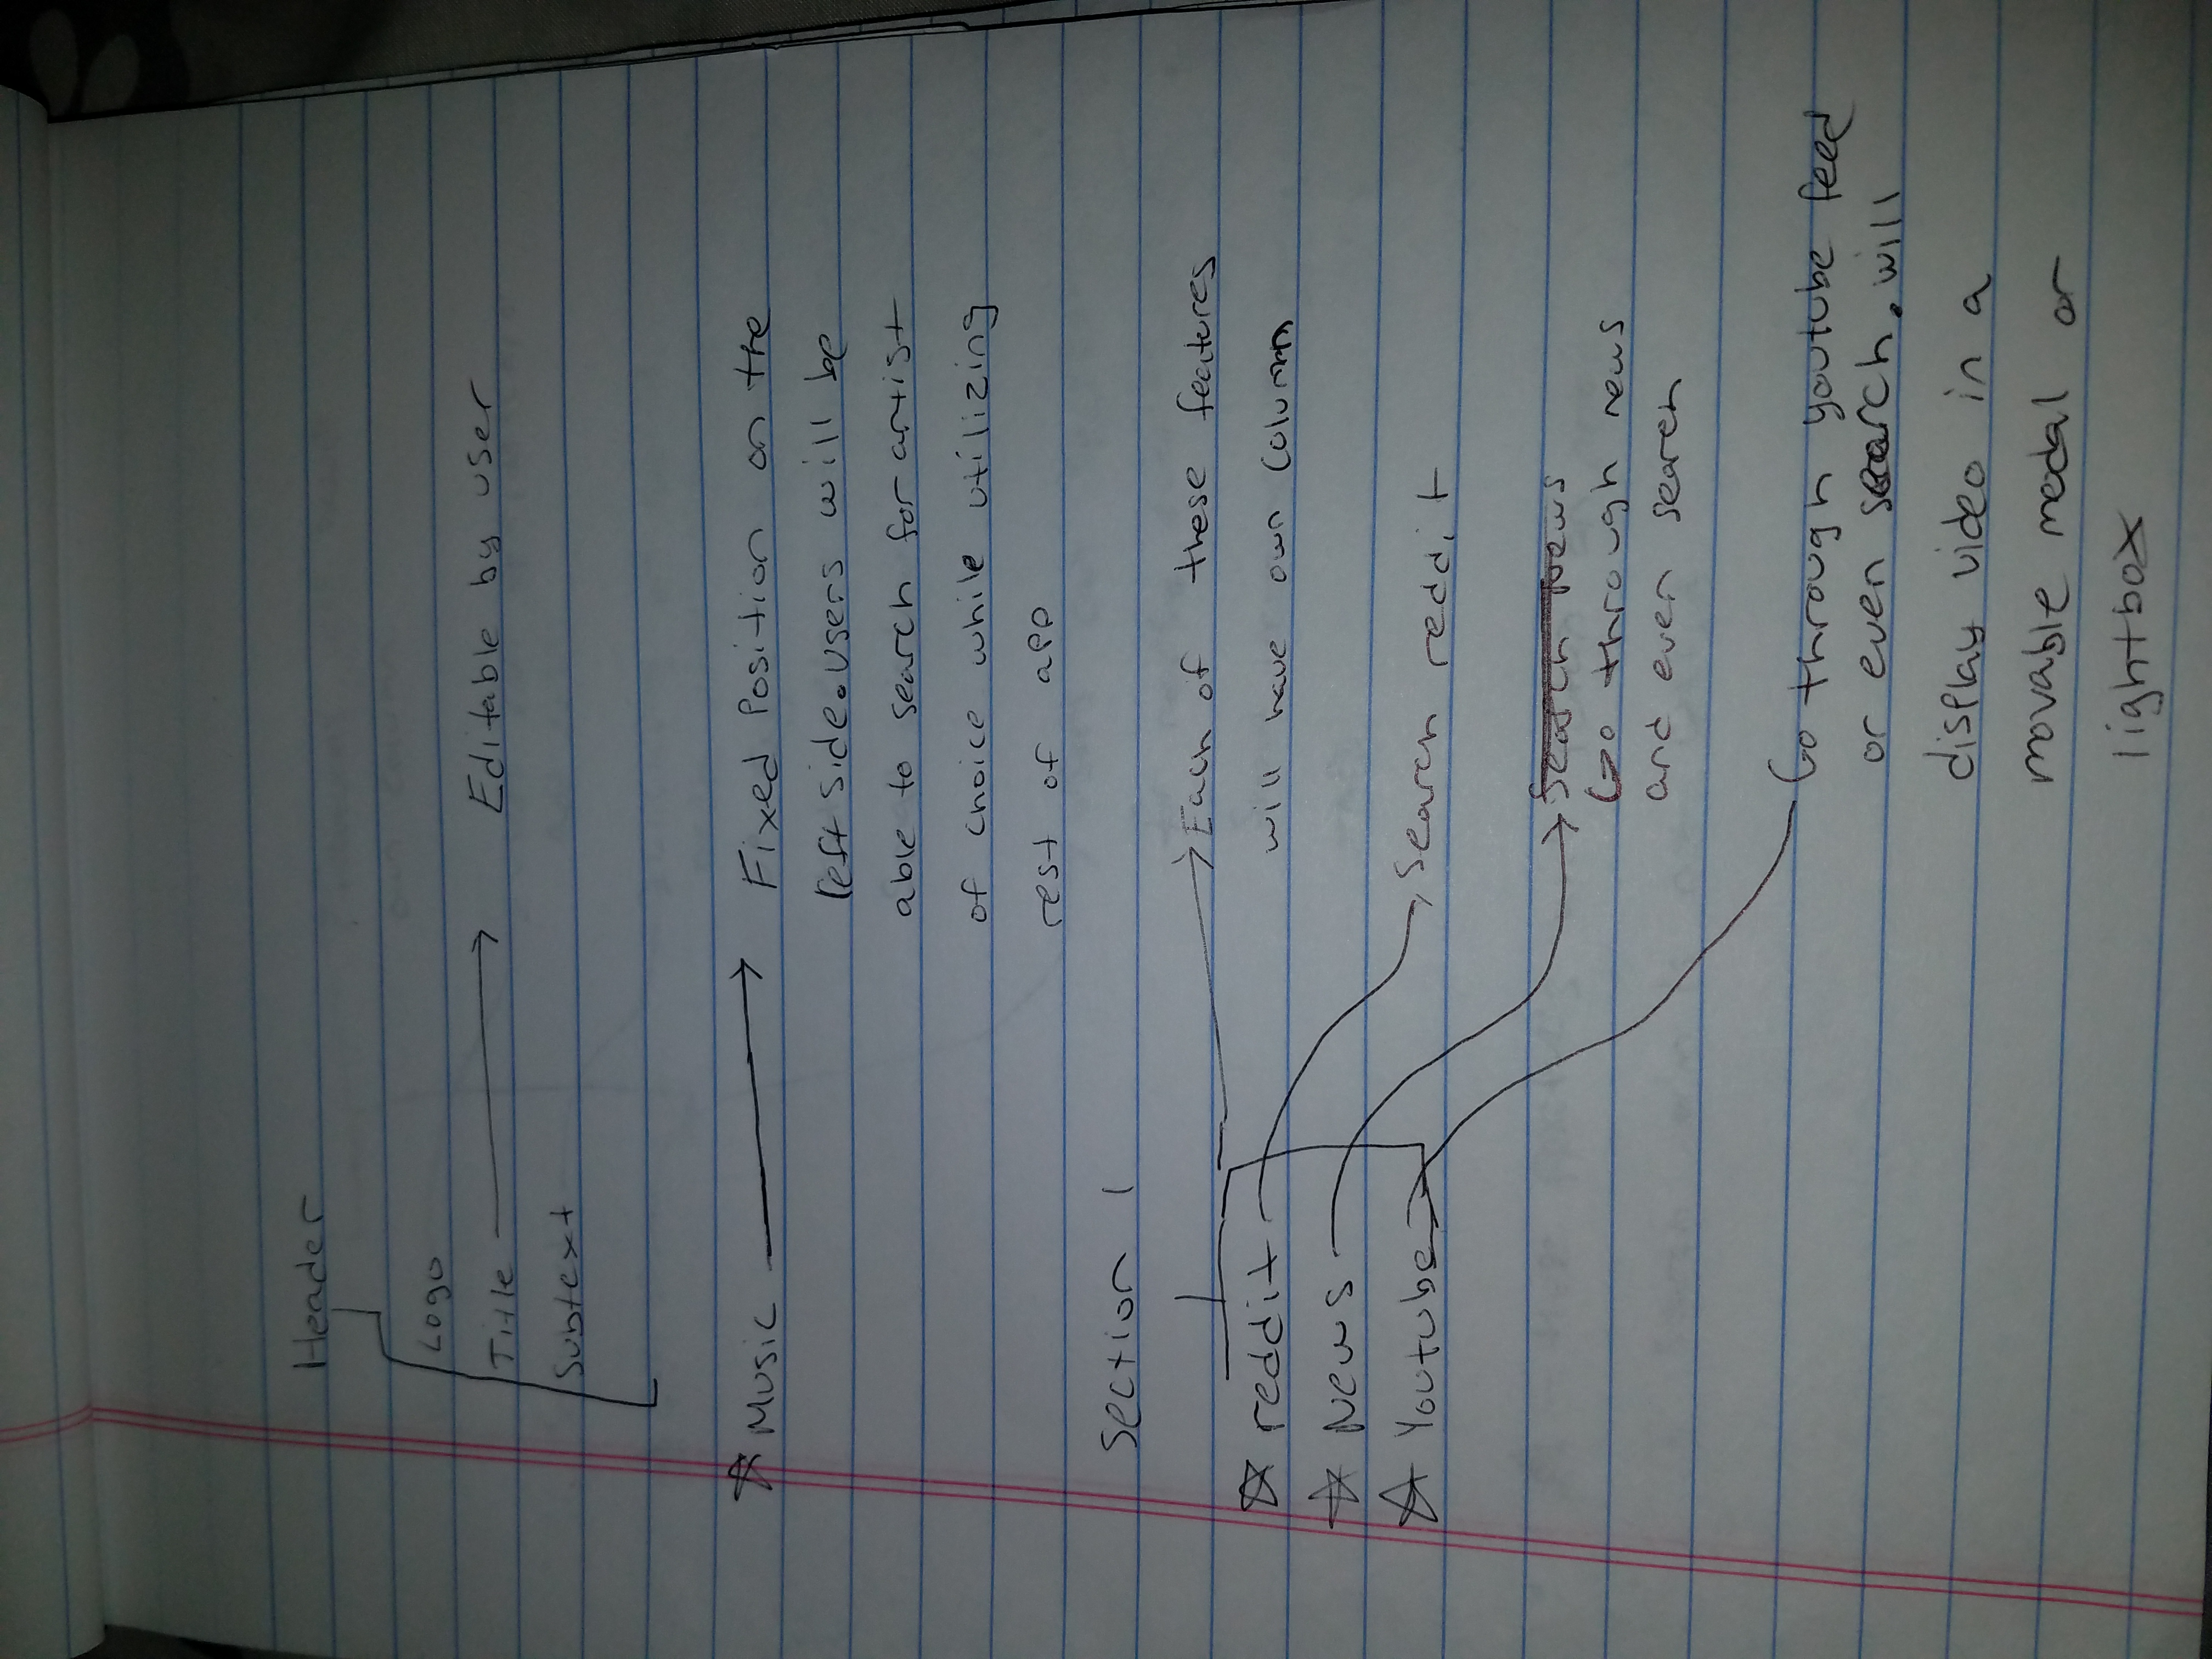 Header
Logo
Title Editable by user
Subtext
Music Fixed Position on the
left side. users will be
able to search for artist
of choice while utilizing
rest of app
Section 1
Each of these features
will have own column
reddit
News
Youtube
Search reddit
Search News
Go through news
and even search
Go through youtube feed
or even search. will
display video in a
movable modal or
lightbox